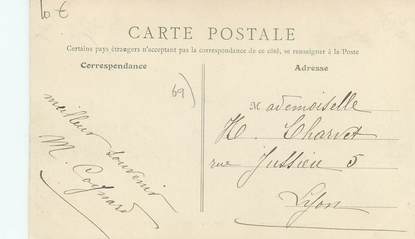 10 €
CARTE POSTALE
Certains pays étrangers n'acceptant pas la correspondance de ce côté, se renseigner à la Poste
Correspondance
Adresse
69
meilleur souvenir
M. Coignard
Mademoiselle
H. Charvet
rue Jussieu 5
Lyon